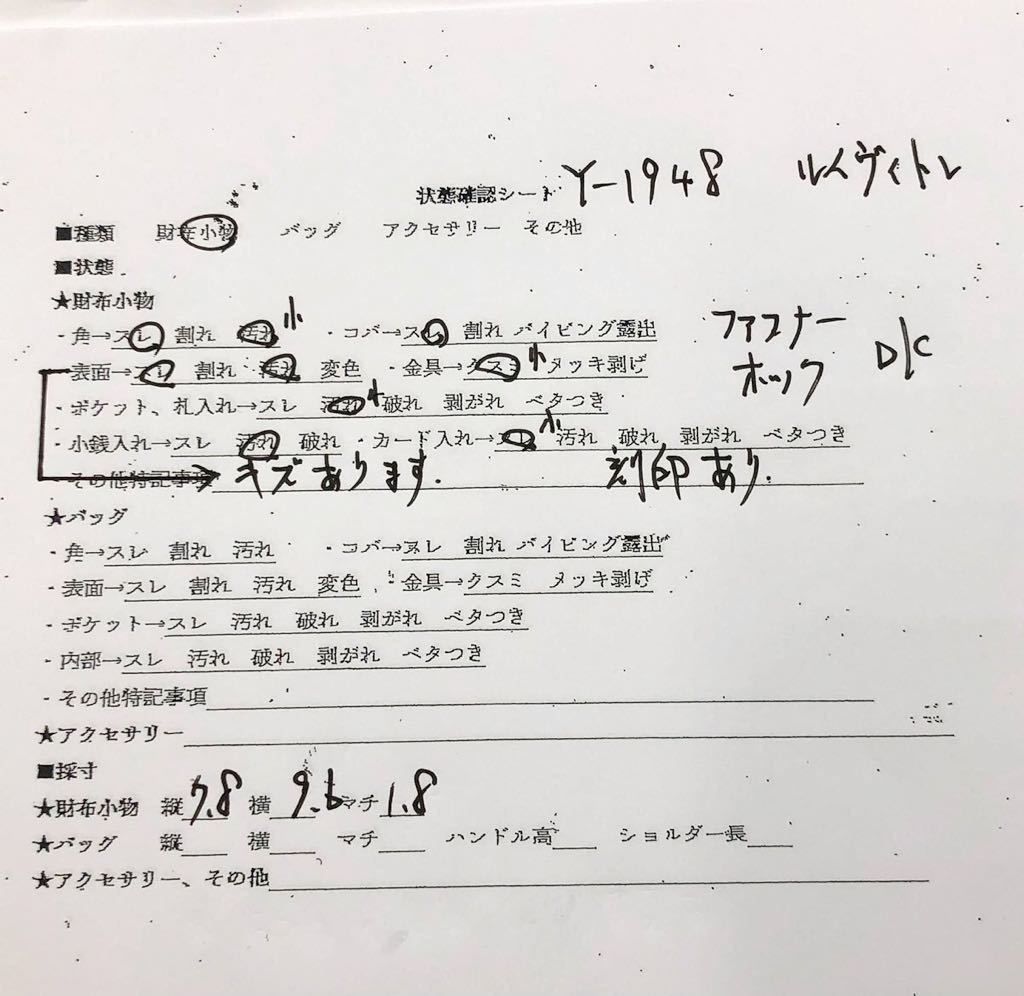 状態確認シート Y-1948 ルイヴィトン
■種類 財布小物 バッグ アクセサリー その他
■状態
★財布小物
・角→スレ 割れ 汚れ 小 ・コバ→スレ 割れ パイピング露出 ファスナー
・表面→スレ 割れ 汚れ 変色 ・金具→クスミ 小 メッキ剥げ ホック D/C
・ポケット、札入れ→スレ 汚れ 小 破れ 剥がれ ベタつき
・小銭入れ→スレ 汚れ 破れ ・カード入れ→スレ 小 汚れ 破れ 剥がれ ベタつき
その他特記事項 キズあります. 刻印あり.
★バッグ
・角→スレ 割れ 汚れ ・コバ→スレ 割れ パイピング露出
・表面→スレ 割れ 汚れ 変色 ・金具→クスミ メッキ剥げ
・ポケット→スレ 汚れ 破れ 剥がれ ベタつき
・内部→スレ 汚れ 破れ 剥がれ ベタつき
・その他特記事項
★アクセサリー
■採寸
★財布小物 縦 7.8 横 9.6 マチ 1.8
★バッグ 縦 横 マチ ハンドル高 ショルダー長
★アクセサリー、その他